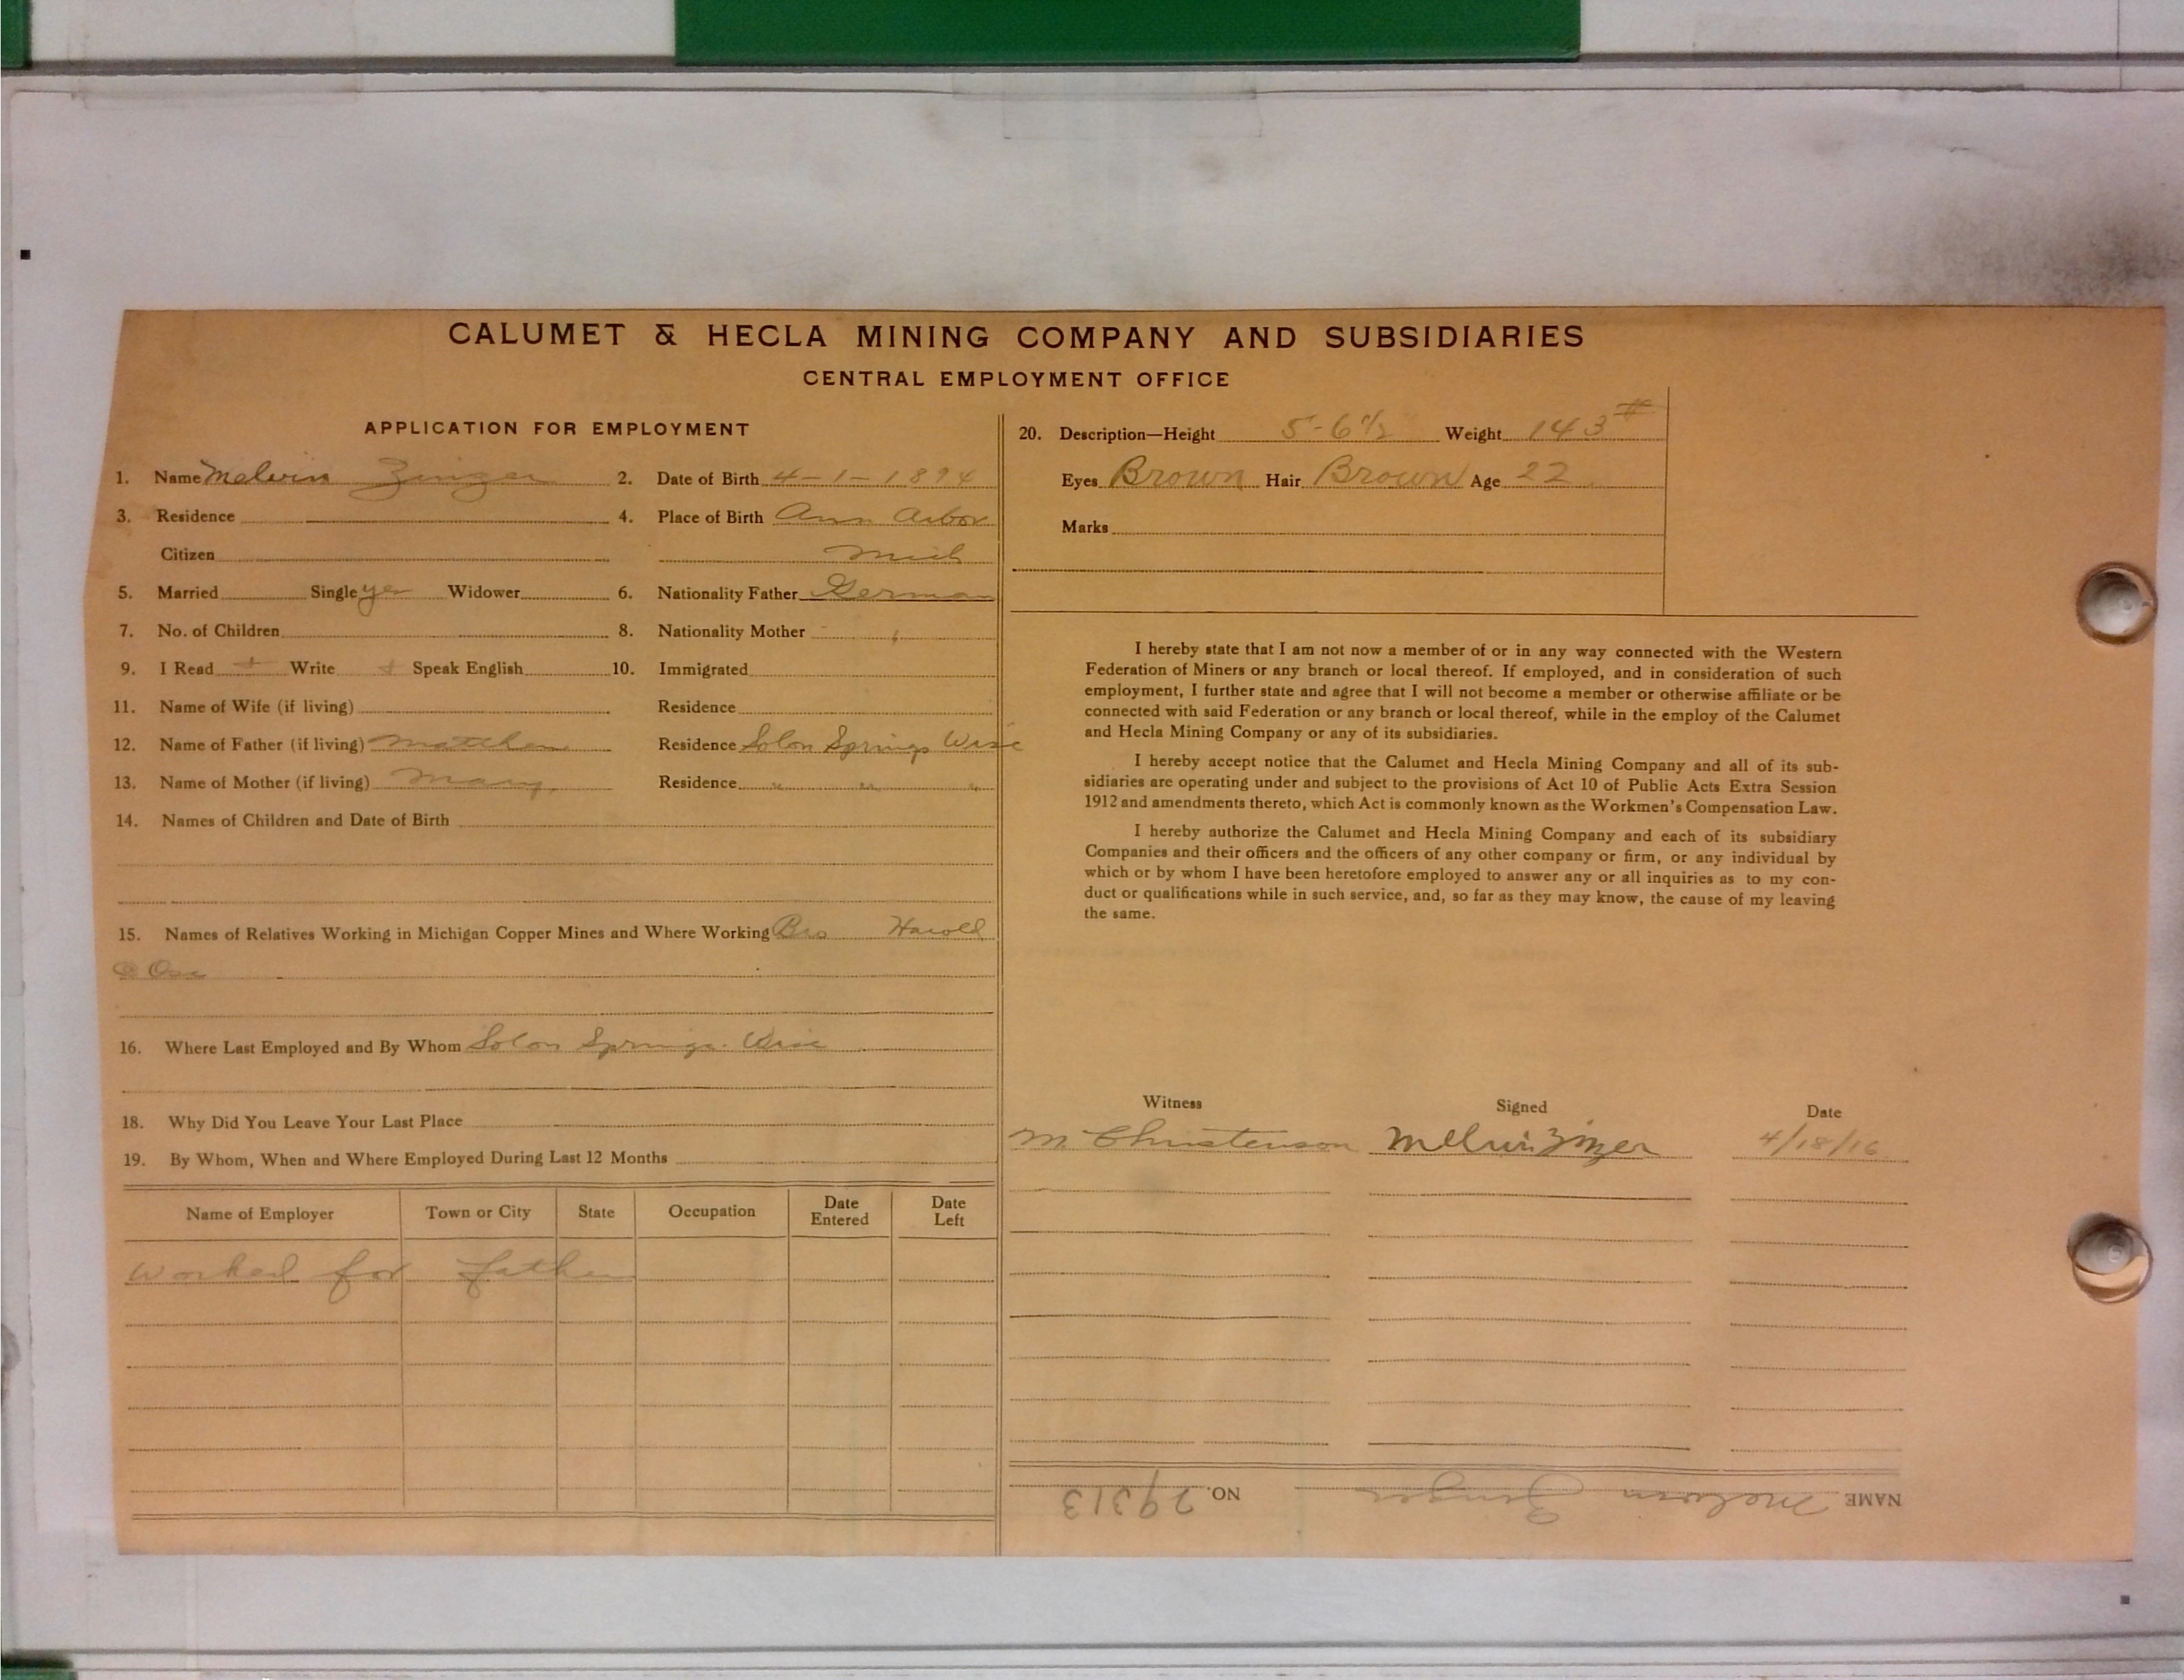 CALUMET & HECLA MINING COMPANY AND SUBSIDIARIES
CENTRAL EMPLOYMENT OFFICE
APPLICATION FOR EMPLOYMENT
1. Name Melvin Zinger 2. Date of Birth 4-1-1894
3. Residence 4. Place of Birth Ann Arbor
Citizen Mich
5. Married Single yes Widower 6. Nationality Father German
7. No. of Children 8. Nationality Mother "
9. I Read + Write + Speak English 10. Immigrated
11. Name of Wife (if living) Residence
12. Name of Father (if living) Matthew Residence Solon Springs Wisc
13. Name of Mother (if living) Mary Residence " " "
14. Names of Children and Date of Birth
15. Names of Relatives Working in Michigan Copper Mines and Where Working Bro Harold
@ Osc
16. Where Last Employed and By Whom Solon Springs. Wisc
18. Why Did You Leave Your Last Place
19. By Whom, When and Where Employed During Last 12 Months
Name of Employer Town or City State Occupation Date Entered Date Left
Worked for father
20. Description—Height 5-6½ Weight 143#
Eyes Brown Hair Brown Age 22
Marks
I hereby state that I am not now a member of or in any way connected with the Western
Federation of Miners or any branch or local thereof. If employed, and in consideration of such
employment, I further state and agree that I will not become a member or otherwise affiliate or be
connected with said Federation or any branch or local thereof, while in the employ of the Calumet
and Hecla Mining Company or any of its subsidiaries.
I hereby accept notice that the Calumet and Hecla Mining Company and all of its sub-
sidiaries are operating under and subject to the provisions of Act 10 of Public Acts Extra Session
1912 and amendments thereto, which Act is commonly known as the Workmen's Compensation Law.
I hereby authorize the Calumet and Hecla Mining Company and each of its subsidiary
Companies and their officers and the officers of any other company or firm, or any individual by
which or by whom I have been heretofore employed to answer any or all inquiries as to my con-
duct or qualifications while in such service, and, so far as they may know, the cause of my leaving
the same.
Witness Signed Date
M Christenson Melvin Zinger 4/18/16
NAME Melvin Zinger NO. 29313